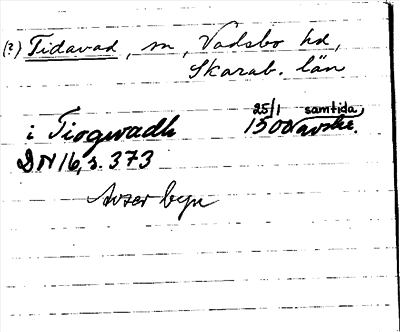 (?) Tidavad, sn, Vadsbo hd,
Skarab. län
25/1 samtida
i Tiogwadh 1500 avskr.
DN 16, s. 373
Avser byn